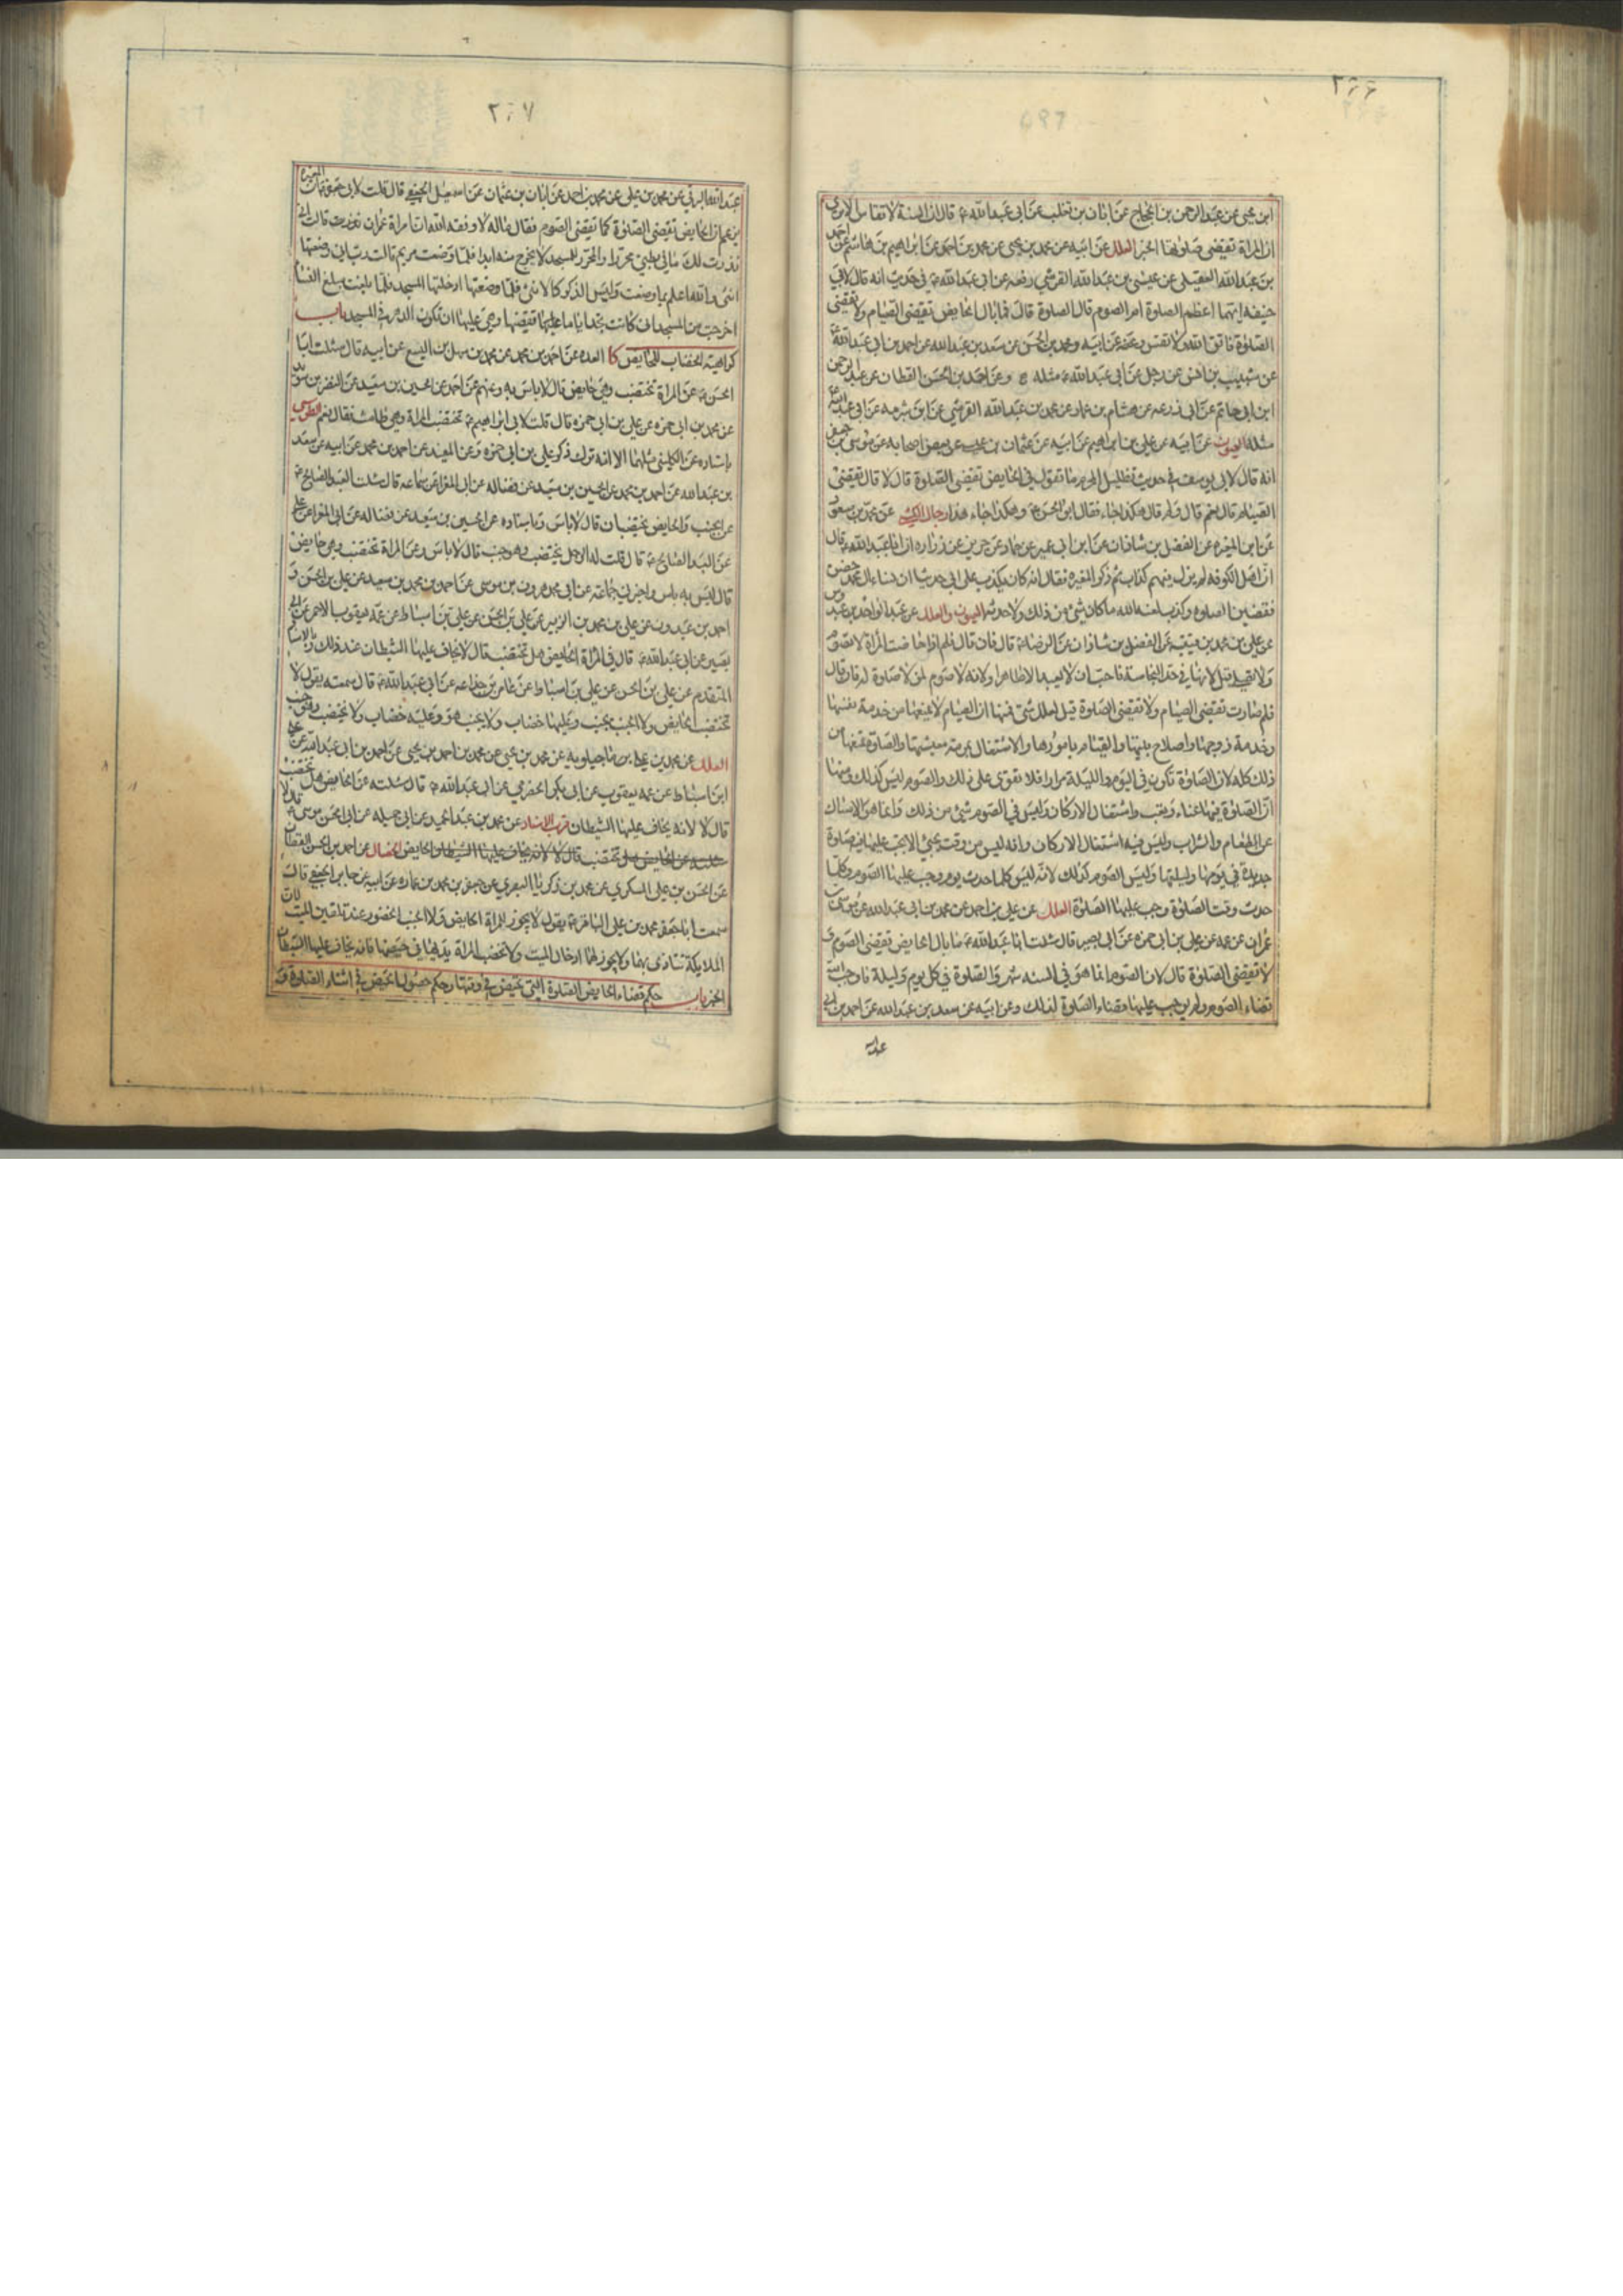 ٢٦٦
ابن يحيى عن عبد الرحمن بن الحجاج عن ابان بن تغلب عن ابى عبد الله ع قال ان السنة لا تقاس الا ترى
ان المراة تقضى صلوتها الخبر العلل عن ابيه عن محمد بن يحيى عن محمد بن احمد عن ابراهيم بن هاشم عن احمد
بن عبد الله العقيلى عن عيسى بن عبد الله القرشى رفعه عن ابى عبد الله ع فى حديث انه قال لابى
حنيفه ايتهما اعظم الصلوة ام الصوم قال الصلوة قال فما بال الحايض تقضى الصيام ولا تقضى
الصلوة فاتق الله ولا تقس وعنه عن ابيه ومحمد بن الحسن عن سعد بن عبد الله عن احمد بن ابى عبد الله
عن شبيب بن انس عن رجل عن ابى عبد الله ع مثله وعن احمد بن الحسن القطان عن عبد الرحمن
ابن ابى حاتم عن ابى زرعه عن هشام بن عمار عن محمد بن عبد الله القرشى عن ابن شبرمه عن ابى عبد الله ع
مثله العيون عن ابيه عن على بن ابراهيم عن ابيه عن عثمان بن عيسى عن بعض اصحابه عن موسى بن جعفر
انه قال لابى يوسف فى حديث تظليل المحرم ما تقول فى الحايض تقضى الصلوة قال لا قال تقضى
الصيام قال نعم قال ولم قال هكذا جاء فقال ابو الحسن ع وهكذا جاء هذا رجال الكشى عن محمد بن مسعود
عن ابن المغيره عن الفضل بن شاذان عن ابن ابى عمير عن حماد عن حريز عن زراره ان ابا عبد الله ع قال
ان اهل الكوفه لم يزل فيهم كذاب ثم ذكر المغيره فقال انه كان يكذب على ابى حدثنا ان نساء ال محمد حضن
فقضين الصلوة وكذب لعنه الله ما كان شئ من ذلك ولا حدثه العيون والعلل عن عبد الواحد بن عبدوس
عن على بن محمد بن قتيبه عن الفضل بن شاذان عن الرضا ع قال فان قال فلم اذا حاضت المراة لا تصوم
ولا تصلى قيل لانها فى حد النجاسة فاحب ان لا يعبد الا طاهرا ولانه لا صوم لمن لا صلوة له فان قال
فلم صارت تقضى الصيام ولا تقضى الصلوة قيل لعلل شتى فمنها ان الصيام لا يمنعها من خدمة نفسها
وخدمة زوجها واصلاح بيتها والقيام بامورها والاشتغال بمرمة معيشتها والصلوة تمنعها من
ذلك كله لان الصلوة تكون فى اليوم والليلة مرارا فلا تقوى على ذلك والصوم ليس كذلك ومنها
ان الصلوة فيها عناء وتعب واشتغال الاركان وليس فى الصوم شئ من ذلك وانما هو الامساك
عن الطعام والشراب وليس فيه اشتغال الاركان وانه ليس من وقت يجئ الا تجب عليها فيه صلوة
جديدة فى يومها وليلتها وليس الصوم كذلك لانه ليس كلما حدث يوم وجب عليها الصوم وكلما
حدث وقت الصلوة وجب عليها الصلوة العلل عن على بن احمد عن محمد بن ابى عبد الله عن موسى بن
عمران عن عمه عن على بن ابى حمزه عن ابى بصير قال سئلت ابا عبد الله ع ما بال الحايض تقضى الصوم و
لا تقضى الصلوة قال لان الصوم انما هو فى السنه شهر والصلوة فى كل يوم وليلة فاوجب الله
قضاء الصوم ولم يوجب عليها قضاء الصلوة لذلك وعن ابيه عن سعد بن عبد الله عن احمد بن ابى
عبد الله
٢٦٧
عبد الله البرقى عن محمد بن على عن محمد بن احمد عن ابان بن عثمان عن اسمعيل الجعفى قال قلت لابى جعفر ع ان المغيرة
يزعم ان الحايض تقضى الصلوة كما تقضى الصوم فقال ما له لا وفقه الله ان امراة عمران نذرت قالت انى
نذرت لك ما فى بطنى محررا والمحرر للمسجد لا يخرج منه ابدا فلما وضعت مريم قالت رب انى وضعتها
انثى والله اعلم بما وضعت وليس الذكر كالانثى فلما وضعتها ادخلتها المسجد فلما بلغت مبلغ النساء
اخرجت من المسجد انى كانت تجد اياما عليها تقضيها وهى عليها ان تكون الدهر فى المسجد باب
كراهية الخضاب للحايض كا العده عن احمد بن محمد عن محمد بن سهل بن اليسع عن ابيه قال سئلت ابا
الحسن ع عن المراة تختضب وهى حايض قال لا باس به وعنهم عن احمد عن الحسين بن سعيد عن النضر بن سويد
عن محمد بن ابى حمزه عن على بن ابى حمزه قال قلت لابى ابراهيم ع تختضب المراة وهى طامث فقال نعم الطوسى
باسناده عن الكلينى مثلهما الا انه ترك ذكر على بن ابى حمزه وعن المفيد عن احمد بن محمد عن ابيه عن سعد
بن عبد الله عن احمد بن محمد عن الحسين بن سعيد عن فضاله عن ابى المغرا عن سماعه قال سئلت العبد الصالح ع
عن الجنب والحايض يختضبان قال لا باس وباسناده عن الحسين بن سعيد عن فضاله عن ابى المغرا عن على
عن العبد الصالح ع قال قلت له الرجل يختضب وهو جنب قال لا باس وعن المراة تختضب وهى حايض
قال ليس به باس واخبرنى جماعة عن ابى محمد هرون بن موسى عن احمد بن محمد بن سعيد عن على بن الحسن و
احمد بن عبدون عن على بن محمد بن الزبير عن على بن الحسن عن على بن اسباط عن عمه يعقوب الاحمر عن ابى
بصير عن ابى عبد الله ع قال فى المراة الحايض هل تختضب قال لا يخاف عليها الشيطان عند ذلك وبالاسناد
المتقدم عن على بن الحسن عن على بن اسباط عن عامر بن جذاعه عن ابى عبد الله ع قال سمعته يقول لا
تختضب الحايض ولا الجنب ولا تجنب وعليها خضاب ولا يجنب هو وعليه خضاب ولا يختضب وهو جنب
العلل عن محمد بن على ماجيلويه عن محمد بن يحيى عن محمد بن احمد بن يحيى عن احمد بن ابى عبد الله عن على
ابن اسباط عن عمه يعقوب عن ابى بكر الحضرمى عن ابى عبد الله ع قال سئلته عن الحايض هل تختضب
قال لا لانه يخاف عليها الشيطان قرب الاسناد عن محمد بن عبد الحميد عن ابى جميله عن ابى الحسن موسى ع قال لا
سئلته عن الحايض هل تختضب قال لا لانه يخاف عليها الشيطان الحايض الخصال عن احمد بن الحسن القطان
عن الحسن بن على السكرى عن محمد بن زكريا البصرى عن جعفر بن محمد بن عماره عن ابيه عن جابر الجعفى قال
سمعت ابا جعفر محمد بن على الباقر ع يقول لا يجوز للمراة الحايض ولا الجنب الحضور عند تلقين الميت لان
الملايكة تتاذى بهما ولا يجوز لهما ادخال الميت ولا تخضب المراة يديها فى حيضها فانه يخاف عليها الشيطان
الخبر باب حكم قضاء الحايض الصلوة التى تحيض فى وقتها وحكم حصول الحيض فى اثناء الصلوة